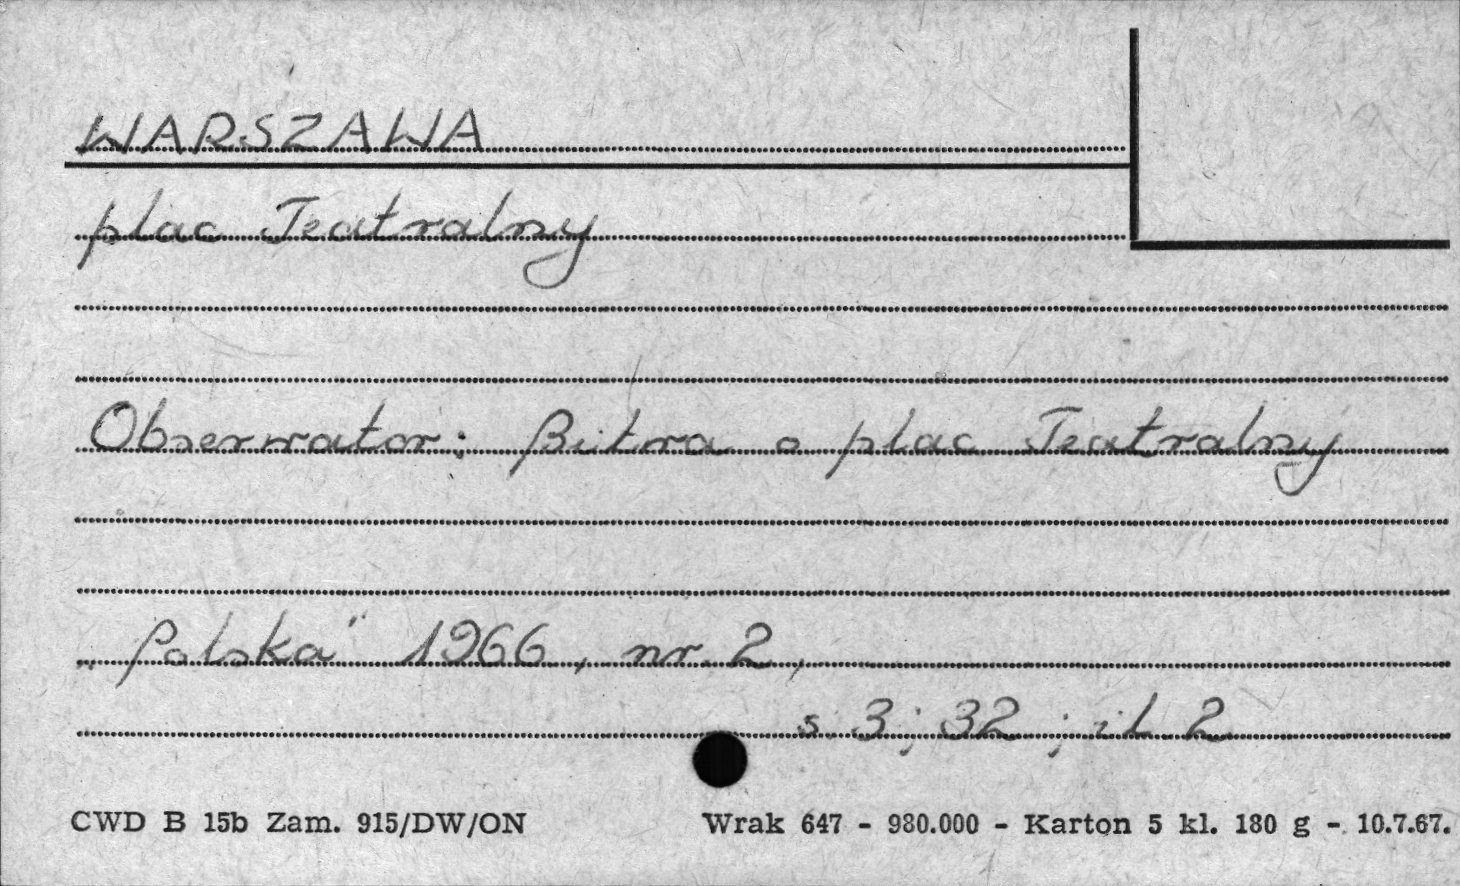 WARSZAWA
plac Teatralny
Obserwator: Bitwa o plac Teatralny
„Polska" 1966, nr. 2,
s. 3; 32; il 2
CWD B 15b Zam. 915/DW/ON Wrak 647 - 980.000 - Karton 5 kl. 180 g - 10.7.67.